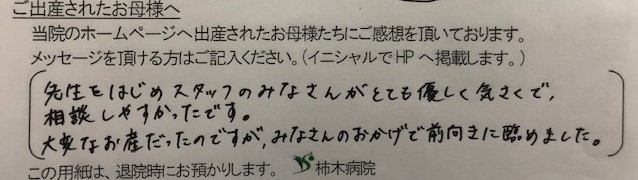 ご出産されたお母様へ
当院のホームページへ出産されたお母様たちにご感想を頂いております。
メッセージを頂ける方はご記入ください。(イニシャルでHPへ掲載します。)
先生をはじめスタッフのみなさんがとても優しく気さくで、
相談しやすかったです。
大変なお産だったのですが、みなさんのおかげで前向きに臨めました。
この用紙は、退院時にお預かりします。 柿木病院